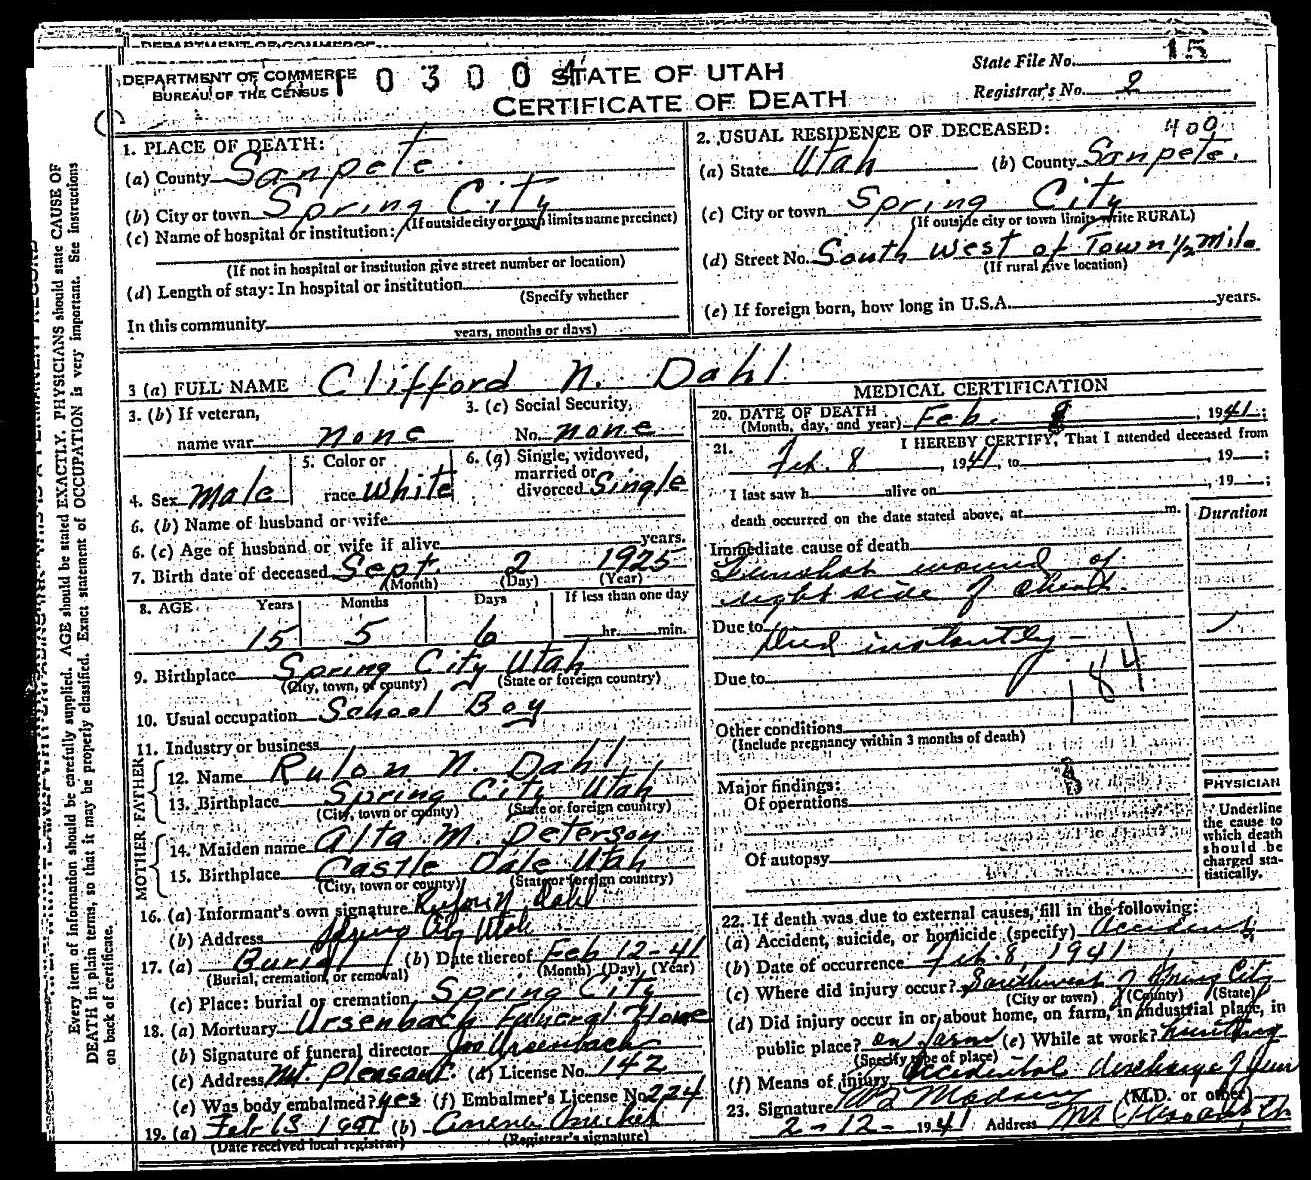 DEPARTMENT OF COMMERCE
BUREAU OF THE CENSUS
0 3 0 0 4
STATE OF UTAH
CERTIFICATE OF DEATH
State File No. 15
Registrar's No. 2
1. PLACE OF DEATH:
(a) County Sanpete
(b) City or town Spring City
(If outside city or town limits name precinct)
(c) Name of hospital or institution:
(If not in hospital or institution give street number or location)
(d) Length of stay: In hospital or institution
(Specify whether
In this community
years, months or days)
2. USUAL RESIDENCE OF DECEASED: 400
(a) State Utah (b) County Sanpete.
(c) City or town Spring City
(If outside city or town limits write RURAL)
(d) Street No. South West of Town 1/2 Mile
(If rural give location)
(e) If foreign born, how long in U.S.A. years.
3 (a) FULL NAME Clifford N. Dahl
3. (b) If veteran, name war none
3. (c) Social Security, No. none
4. Sex Male
5. Color or race White
6. (a) Single, widowed, married or divorced Single
6. (b) Name of husband or wife
6. (c) Age of husband or wife if alive years.
7. Birth date of deceased Sept. 2 1925
(Month) (Day) (Year)
8. AGE Years Months Days If less than one day
15 5 6 hr. min.
9. Birthplace Spring City Utah
(City, town, or county) (State or foreign country)
10. Usual occupation School Boy
11. Industry or business
FATHER
12. Name Rulon N. Dahl
13. Birthplace Spring City Utah
(City, town or county) (State or foreign country)
MOTHER
14. Maiden name Alta M. Peterson
15. Birthplace Castle Dale Utah
(City, town or county) (State or foreign country)
16. (a) Informant's own signature Rulon N Dahl
(b) Address Spring City Utah
17. (a) Burial (b) Date thereof Feb 12-41
(Burial, cremation, or removal) (Month) (Day) (Year)
(c) Place: burial or cremation Spring City
18. (a) Mortuary Ursenbach Funeral Home
(b) Signature of funeral director Ursenbach
(c) Address Mt. Pleasant (d) License No. 142
(e) Was body embalmed? yes (f) Embalmer's License No. 224
19. (a) Feb 13 1941 (b)
(Date received local registrar) (Registrar's signature)
MEDICAL CERTIFICATION
20. DATE OF DEATH Feb. 8, 1941;
(Month, day, and year)
21. I HEREBY CERTIFY, That I attended deceased from
Feb. 8, 1941, to , 19 ;
I last saw h alive on , 19 ;
death occurred on the date stated above, at m.
Duration
Immediate cause of death
Gunshot wound of
right side of chest.
Due to
Died instantly -
Due to
184
Other conditions
(Include pregnancy within 3 months of death)
Major findings:
Of operations
Of autopsy
PHYSICIAN
Underline
the cause to
which death
should be
charged sta-
tistically.
22. If death was due to external causes, fill in the following:
(a) Accident, suicide, or homicide (specify) Accident
(b) Date of occurrence Feb. 8, 1941
(c) Where did injury occur? Southwest of Spring City
(City or town) (County) (State)
(d) Did injury occur in or about home, on farm, in industrial place, in
public place? on farm (e) While at work? hunting
(Specify type of place)
(f) Means of injury Accidental discharge of gun
23. Signature Madsen (M.D. or other)
2-12-1941 Address Mt Pleasant
Every item of information should be carefully supplied. AGE should be stated EXACTLY. PHYSICIANS should state CAUSE OF
DEATH in plain terms, so that it may be properly classified. Exact statement of OCCUPATION is very important. See instructions
on back of certificate.